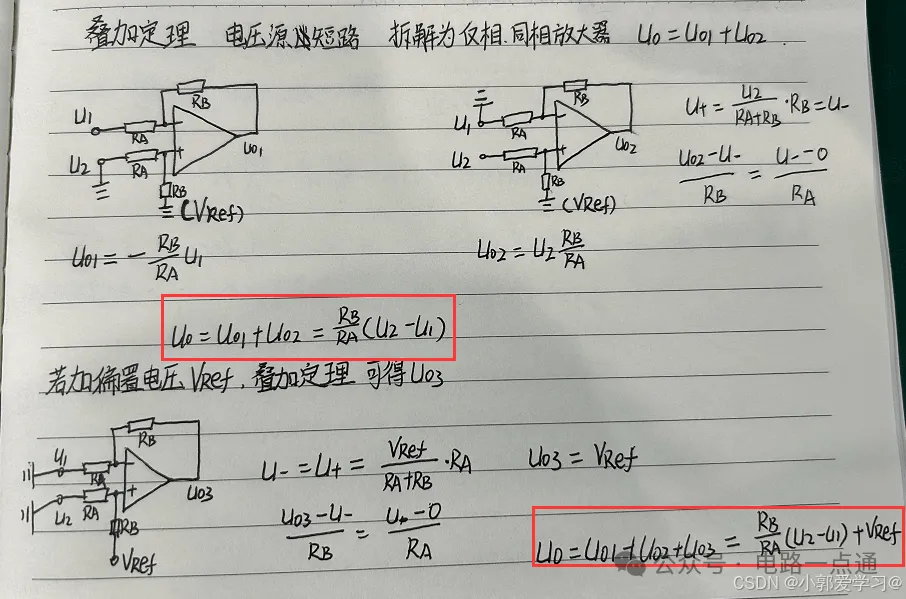 叠加定理 电压源⇒短路 拆解为反相.同相放大器 U0=U01+U02
RB
U1
RA
U2
RA
U01
RB
(VRef)
RB
U1
RA
U2
RA
U02
RB
(VRef)
U+ = U2/(RA+RB)·RB = U-
(U02-U-)/RB = (U--0)/RA
U01 = -RB/RA U1
U02 = U2 RB/RA
U0 = U01+U02 = RB/RA (U2-U1)
若加偏置电压VRef,叠加定理 可得U03
RB
U1
RA
U2
RA
U03
RB
VRef
U- = U+ = VRef/(RA+RB)·RA
U03 = VRef
(U03-U-)/RB = (U--0)/RA
U0=U01+U02+U03 = RB/RA (U2-U1)+VRef
公众号·电路一点通
CSDN @小郭爱学习@